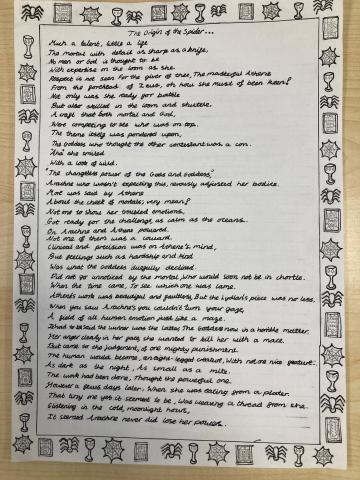 The Origin of the Spider...
Much a talent, little a life
The mortal with detail as sharp as a knife,
No man or God is thought to be
With expertise on the loom as she.
Respect is not seen for the giver of thee, The masterful Athene
From the forehead of Zeus, oh how she must of been keen!
Not only was she ready for battle
But also skilled in the loom and shuttle.
A craft that both mortal and God,
Were competing to see who was on top.
The theme itself was pondered upon,
The Goddess who thought the other contestant was a con.
she smiled
With a look of wild.
"The changeless power of the Gods and Goddess"
Arachne who wasn't expecting this, nervously adjusted her bodice.
that was said by Athene
About the cheek of mortals, very mean!
Not one to show her troubled emotions,
Got ready for the challenge, as calm as the oceans.
On Arachne and Athene powered.
Not one of them was a coward.
Clinical and precision was on Athene's mind,
But feelings such as hardship and kind
Was what the Goddess declined.
Did not go unnoticed by the mortal, who would soon not be in chortle.
When the time came, To see which one was lame.
Athene's work was beautiful and faultless, But the Lydian's piece was no less.
When you saw Arachne's you couldn't turn your gaze,
A field of all human emotion just like a maze.
It had to be said the winner was the latter, The Goddess now in a horrible matter.
Her anger clearly in her face, she wanted to kill her with a mace.
But came for the judgement, of one mighty punishment.
The human would become, an eight-legged creature, With not one nice feature.
As dark as the night, As small as a mite.
The work had been done, Thought the powerful one.
However a few days later, When she was eating from a plater.
That tiny one yet it seemed to be, Was weaving a thread from she.
Glistening in the cold, moonlight hours,
It seemed Arachne never did lose her powers.